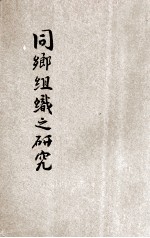 同鄉組織之研究